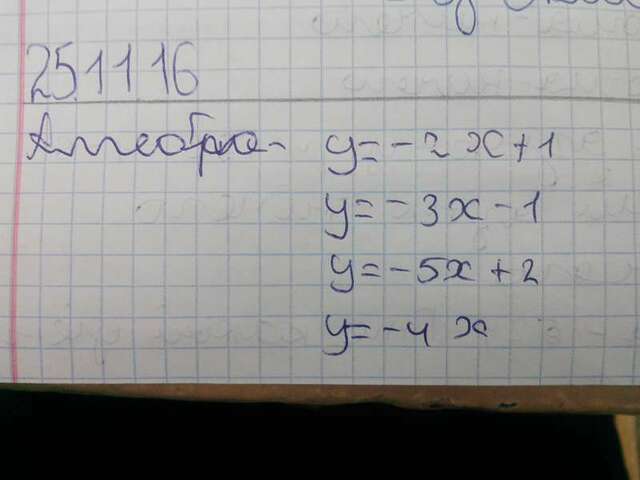 25.11.16
Алгебра- y=-2x+1
y=-3x-1
y=-5x+2
y=-4x